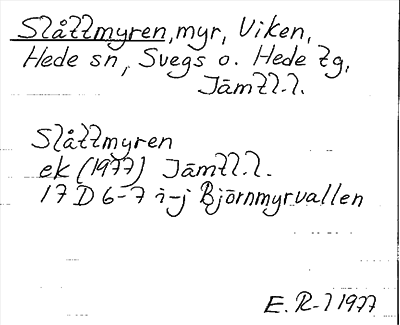 Slåttmyren, myr, Viken,
Hede sn, Svegs o. Hede tg,
Jämtl.l.
Slåttmyren
ek (1977) Jämtl.l.
17 D 6-7 i-j Björnmyrvallen
E. R-l 1977